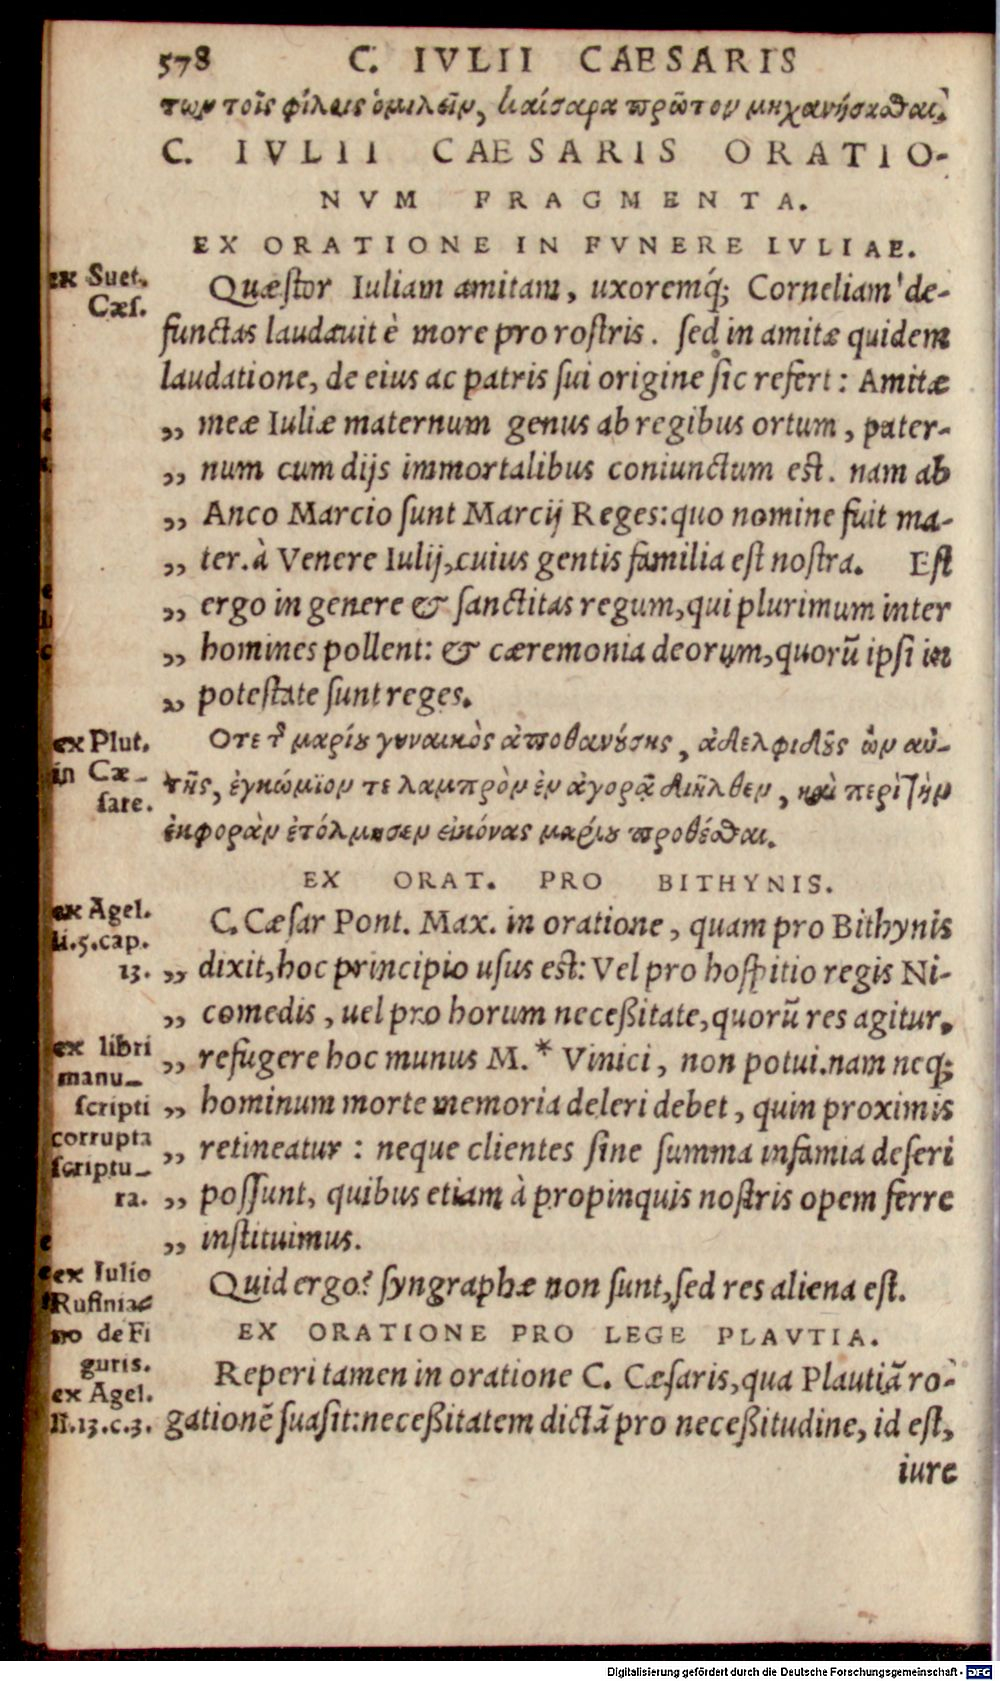 578 C. IVLII CAESARIS
των τοῖς φίλοις ὁμιλεῖν, καίσαρα πρῶτον μηχανήσασθαι.
C. IVLII CAESARIS ORATIO-
NVM FRAGMENTA.
EX ORATIONE IN FVNERE IVLIAE.
ex Suet.
Cæs.
Quæstor Iuliam amitam, uxoremq́; Corneliam de-
functas laudauit è more pro rostris. sed in amitæ quidem
laudatione, de eius ac patris sui origine sic refert: Amitæ
„ meæ Iuliæ maternum genus ab regibus ortum, pater-
„ num cum dijs immortalibus coniunctum est. nam ab
„ Anco Marcio sunt Marcij Reges: quo nomine fuit ma-
„ ter. à Venere Iulij, cuius gentis familia est nostra. Est
„ ergo in genere & sanctitas regum, qui plurimum inter
„ homines pollent: & cæremonia deorum, quorũ ipsi in
„ potestate sunt reges.
ex Plut.
in Cæ-
sare.
Ὅτε τ͂ μαρίου γυναικὸς ἀποθανούσης, ἀδελφιδοῦς ὢν αὐ-
τῆς, ἐγκώμϊον τε λαμπρὸν ἐν ἀγορᾷ διῆλθεν, καὶ περὶ τὴν
ἐκφορὰν ἐτόλμησεν εἰκόνας μαρίου προθέσθαι.
EX ORAT. PRO BITHYNIS.
ex Agel.
li.5.cap.
13.
C. Cæsar Pont. Max. in oratione, quam pro Bithynis
„ dixit, hoc principio usus est: Vel pro hospitio regis Ni-
„ comedis, uel pro horum neceßitate, quorũ res agitur,
ex libri
manu-
scripti
corrupta
scriptu-
ra.
„ refugere hoc munus M.* Vinici, non potui. nam neq;
„ hominum morte memoria deleri debet, quin proximis
„ retineatur: neque clientes sine summa infamia deseri
„ possunt, quibus etiam à propinquis nostris opem ferre
„ instituimus.
ex Iulio
Rufiniae
no de Fi
guris.
Quid ergo? syngraphæ non sunt, sed res aliena est.
EX ORATIONE PRO LEGE PLAVTIA.
ex Agel.
li.13.c.3.
Reperi tamen in oratione C. Cæsaris, qua Plautiã ro-
gationẽ suasit: neceßitatem dictã pro neceßitudine, id est,
iure
Digitalisierung gefördert durch die Deutsche Forschungsgemeinschaft - DFG